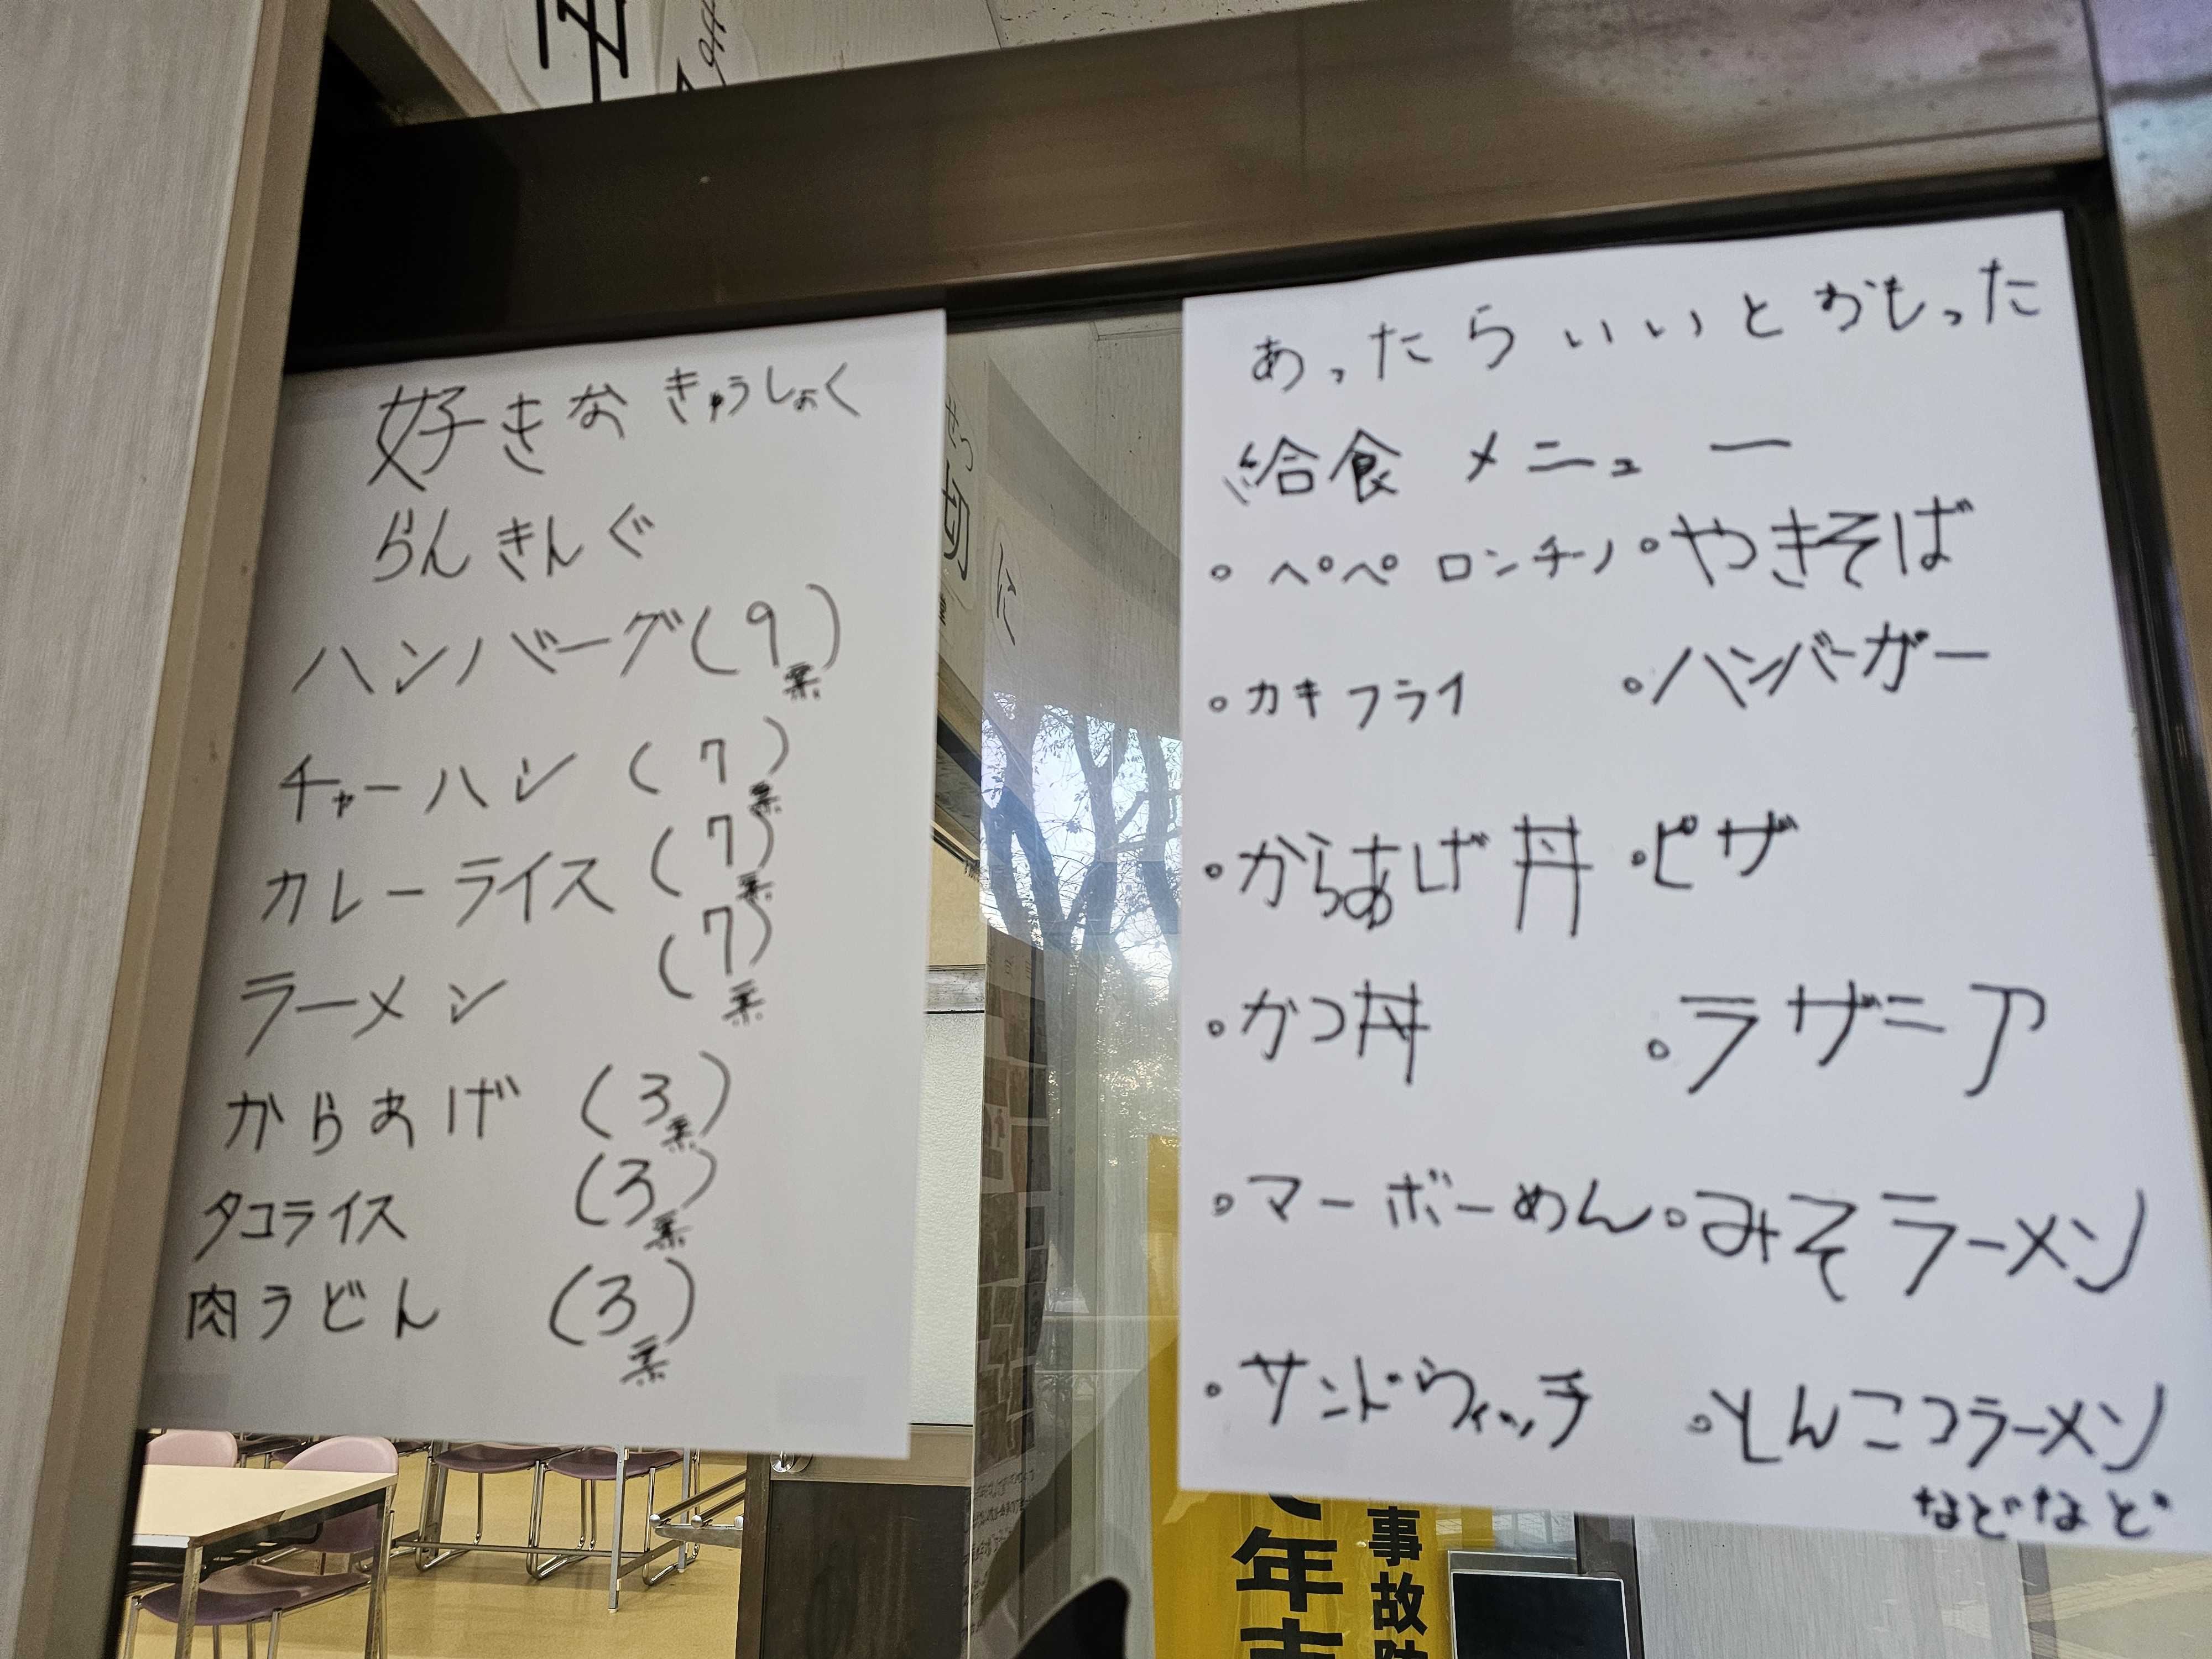 好きなきゅうしょく
らんきんぐ
ハンバーグ(9票)
チャーハン(7票)
カレーライス(7票)
ラーメン(7票)
からあげ(3票)
タコライス(3票)
肉うどん(3票)
あったらいいとおもった
給食メニュー
。ペペロンチーノ 。やきそば
。カキフライ 。ハンバーガー
。からあげ丼 。ピザ
。かつ丼 。ラザニア
。マーボーめん 。みそラーメン
。サンドウィッチ 。とんこつラーメン
などなど
切に
事故
年